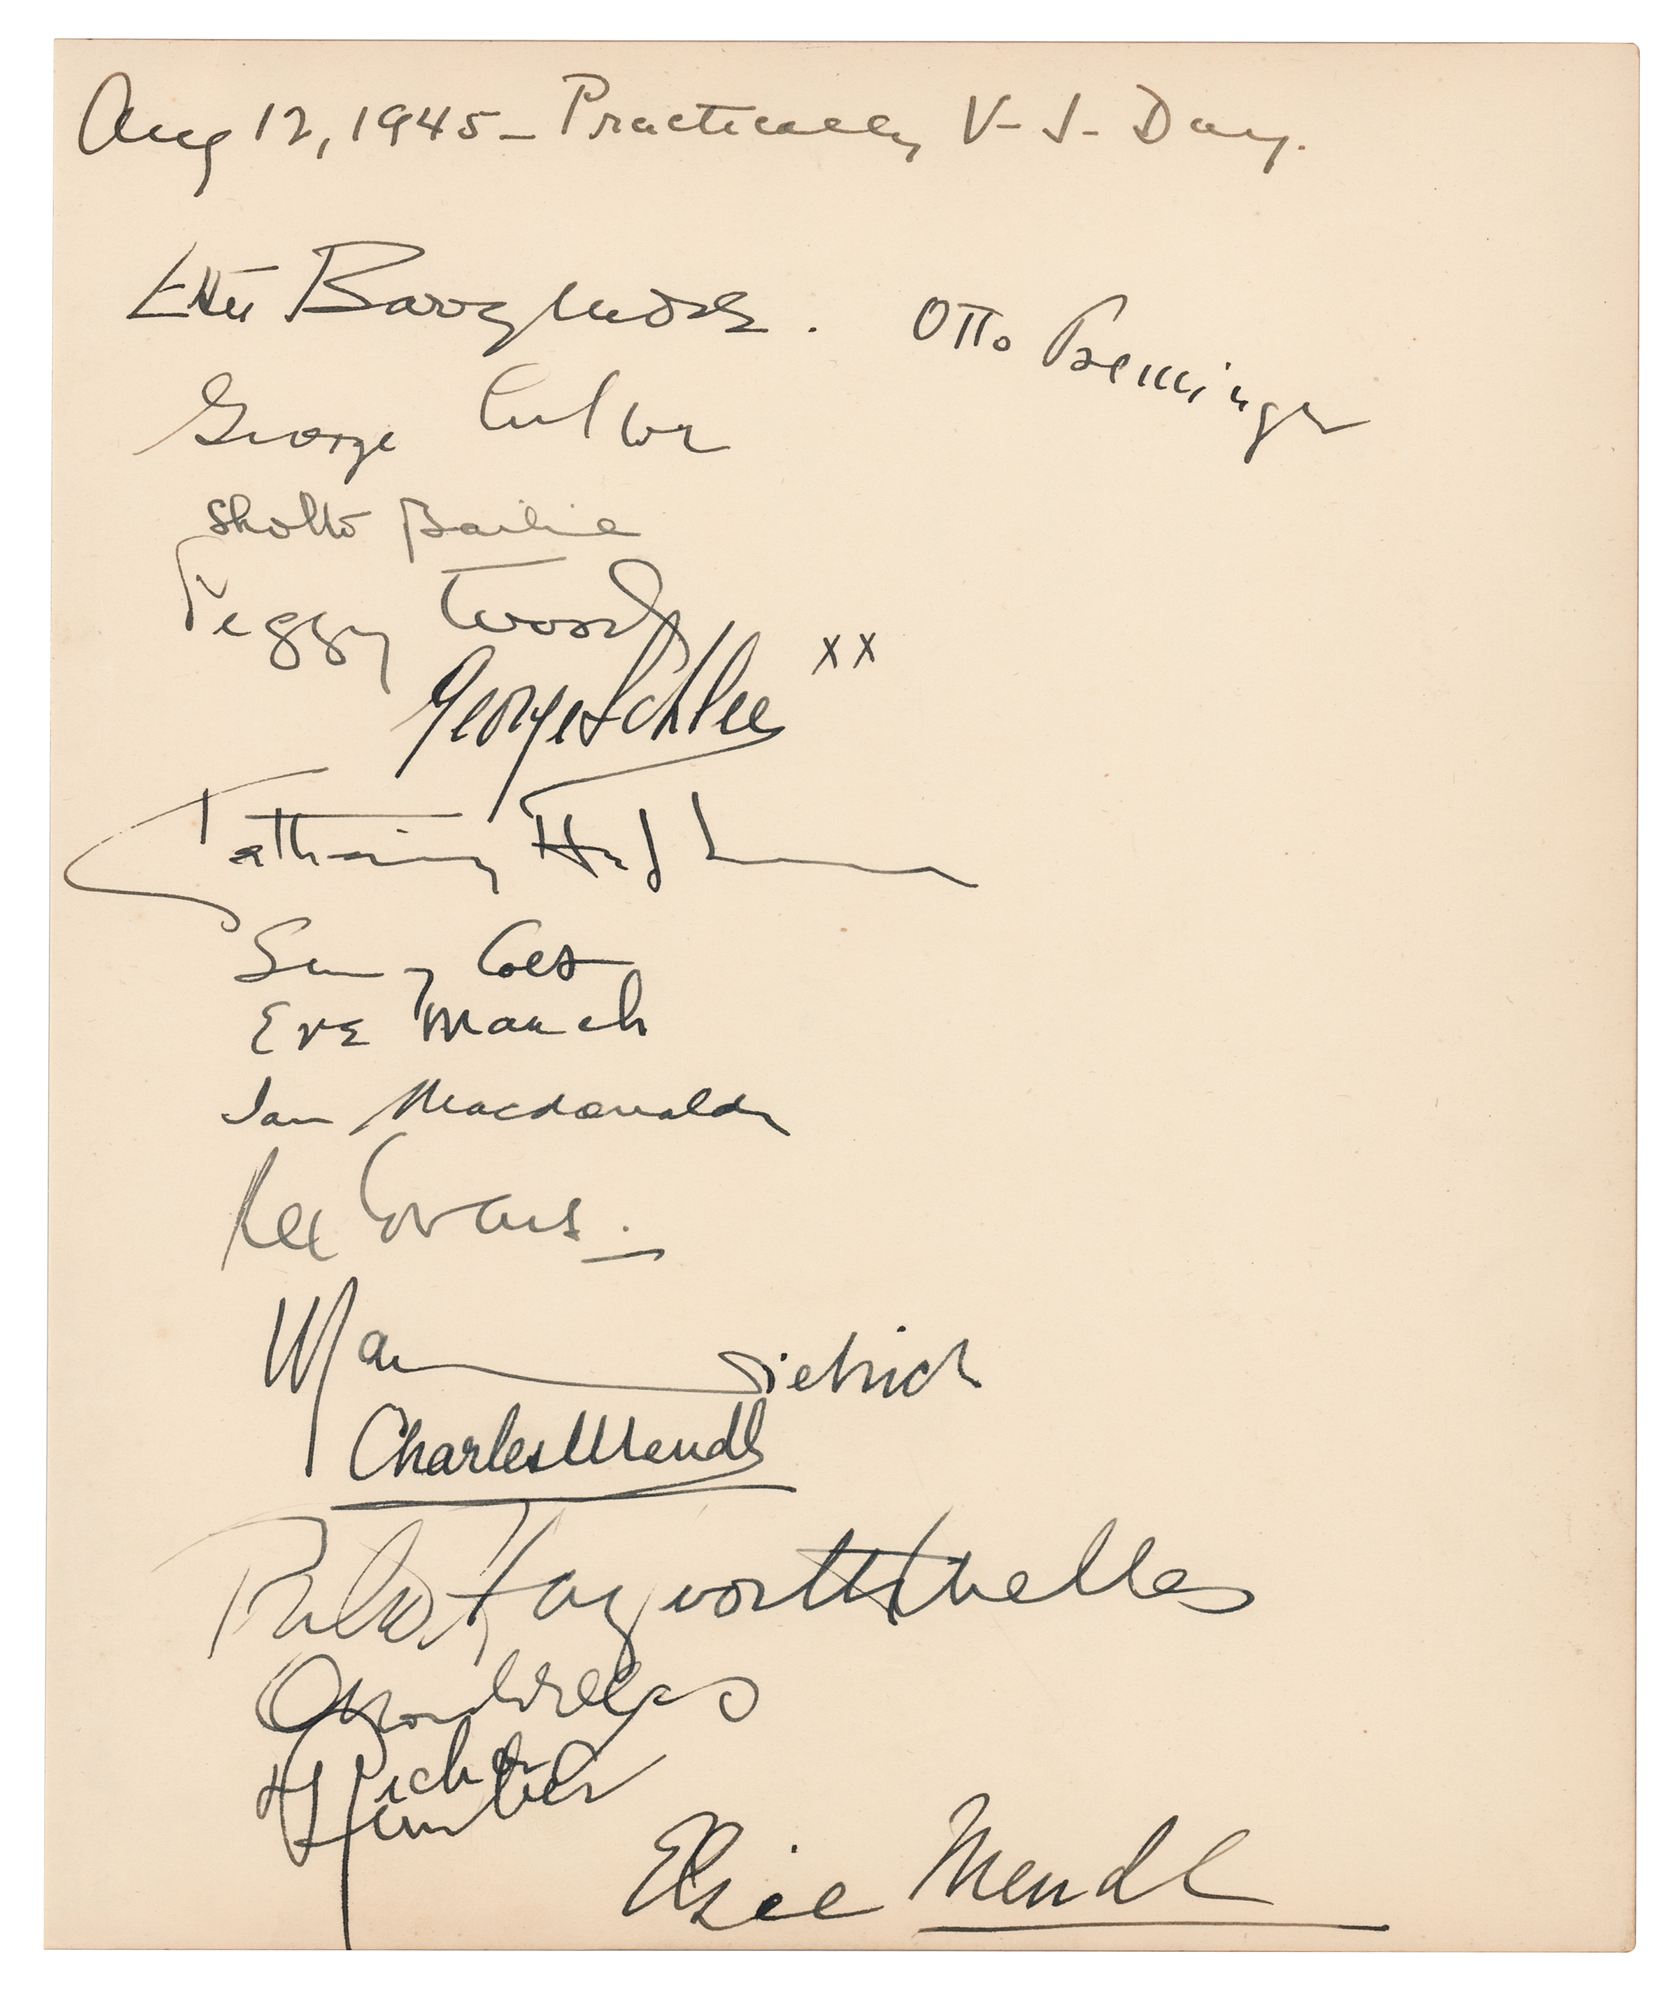 Aug 12, 1945 - Practically V-J-Day.
Ethel Barrymore. Otto Preminger
George Cukor
Sholto Bailie
Peggy Wood
George Schlee xx
Katharine Hepburn
Eve March
Ian Macdonald
Rex Evans.
Marlene Dietrich
Charles Mendl
Rita Hayworth Welles
Orson Welles
Richard
Himber
Elsie Mendl